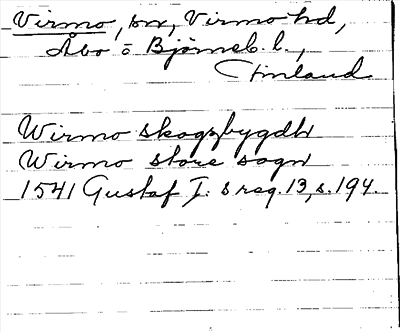 Virmo, sn, Virmo hd,
Åbo o Björneb. l.,
Finland
Wirmo skogzbygdh
Wirmo store sogn
1541 Gustaf I: s reg. 13, s. 194.